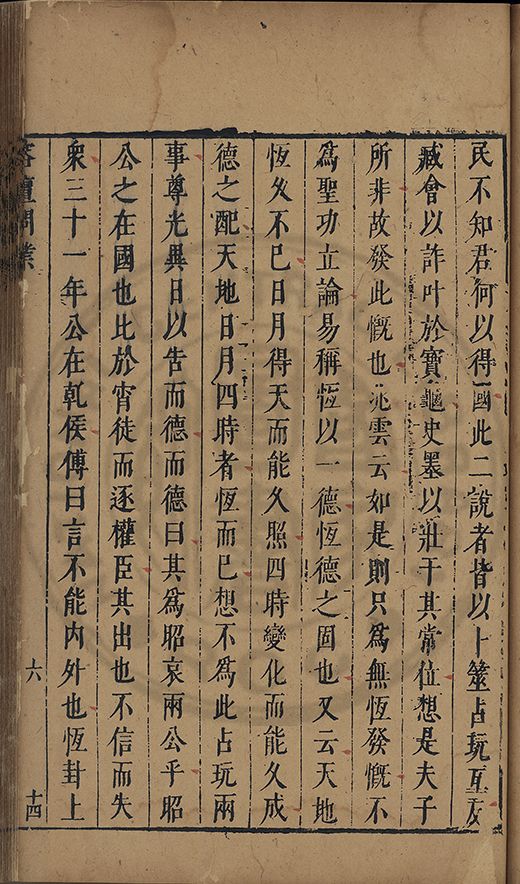 民不知君何以得國此二說者皆以卜筮占玩互友
臧會以詐叶於寶龜史墨以壯干其常位想是夫子
所非故發此慨也兆雲云如是則只為無恆發慨不
為聖功立論易稱恆以一德恆德之固也又云天地
恆久不已日月得天而能久照四時變化而能久成
德之配天地日月四時者恆而已想不為此占玩兩
事尊光異日以告而德而德曰其為昭哀兩公乎昭
公之在國也比於宵徒而逐權臣其出也不信而失
衆三十一年公在乾侯傳曰言不能內外也恆卦上
榕壇問業
六
十四